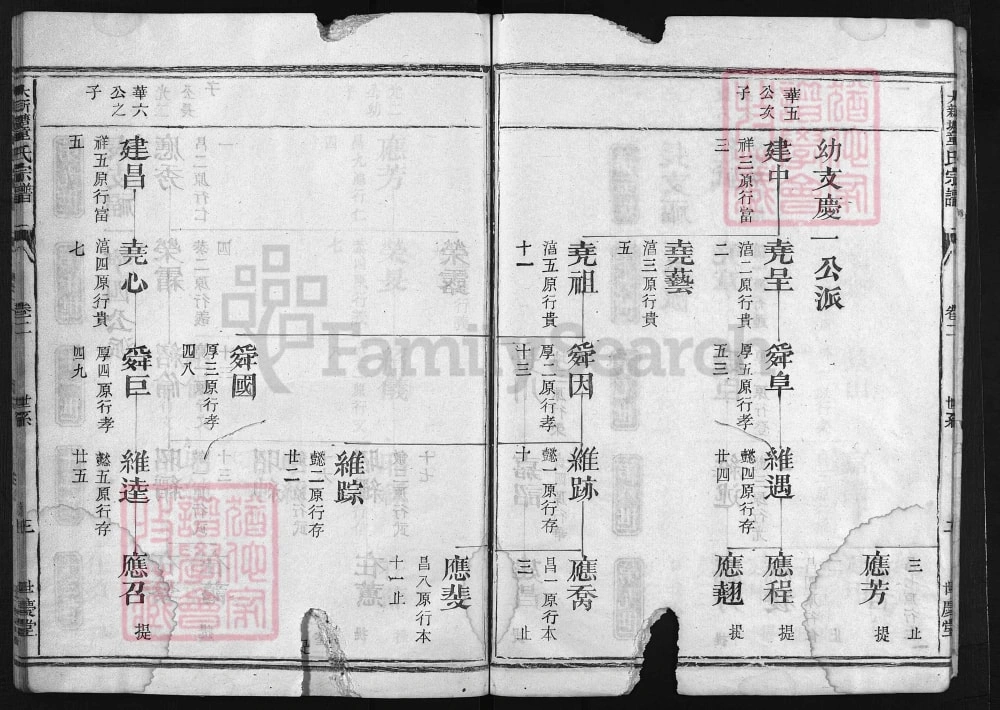 幼支慶一公派
華五
公次
子
建中
祥三原行富
三
堯呈
㴠二原行貴
二
舜阜
厚五原行孝
五三
維遇
懿四原行存
廿四
應芳 提
應程 提
應翹 提
三 止
堯藝
㴠三原行貴
五
堯祖
㴠五原行貴
十一
舜因
厚二原行孝
十三
維跡
懿一原行存
十
應喬
昌一原行本
三 止
維踪
懿二原行存
廿二
應斐
昌八原行本
十一止
舜國
厚三原行孝
四八
華六
公之
子
建昌
祥五原行富
五
堯心
㴠四原行貴
七
舜巨
厚四原行孝
四九
維逵
懿五原行存
廿五
應召 提
氏宗譜
卷二
世系
三
世慶堂
氏宗譜
卷二
世系
世慶堂
FamilySearch